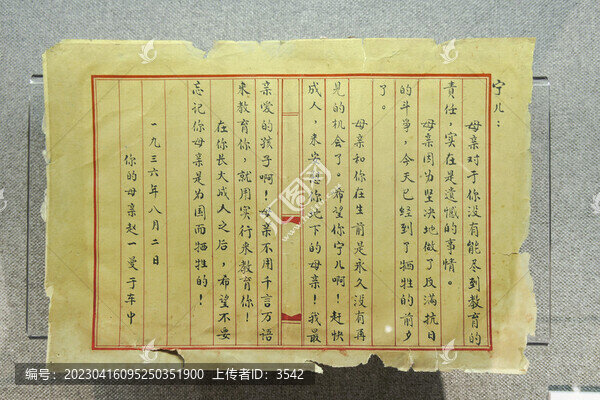 宁儿：
母亲对于你没有能尽到教育的
责任，实在是遗憾的事情。
母亲因为坚决地做了反满抗日
的斗争，今天已经到了牺牲的前夕
了。
母亲和你在生前是永久没有再
见的机会了。希望你宁儿啊！赶快
成人，来安慰你地下的母亲！我最
亲爱的孩子啊！母亲不用千言万语
来教育你，就用实行来教育你！
在你长大成人之后，希望不要
忘记你母亲是为国而牺牲的！
一九三六年八月二日
你的母亲赵一曼于车中
图行天下
编号：20230416095250351900 上传者ID：3542